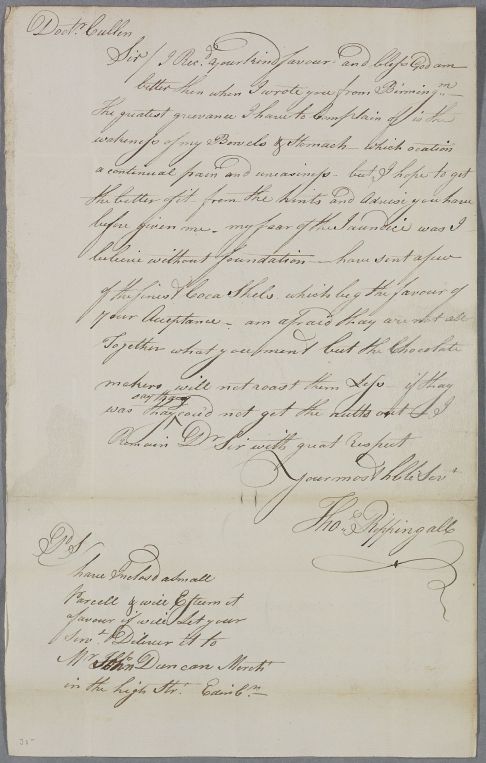 Doctr. Cullen
Sir/ I Recd. your kind favour and bless God am
better then when I wrote you from Birmingm.
the greatest grievance I have to Complain of is the
wakeness of my Bowels & Stomach which ocation
a continual pain and uneasiness - but I hope to get
the better of it from the hints and advise you have
before given me - my fear of the Jaundice was I
believe without foundation - have sent a few
of the finest Coca Shels which beg the favour of
your Aceptance - am afraid thay are not all
Together what you ment but the Chocolate
makers will not roast them Less - if thay
say thay
was thay coud not get the nutts out I
Remain Dr Sir with great respect
Your most Hble Servt
Thos. Rippingall
PS
have Inclosd a small
Parcell & will Esteem it
a favour if will Let your
Servt. Deliver it to
Mr John Duncan Mercht
in the high Str. Edinbn.